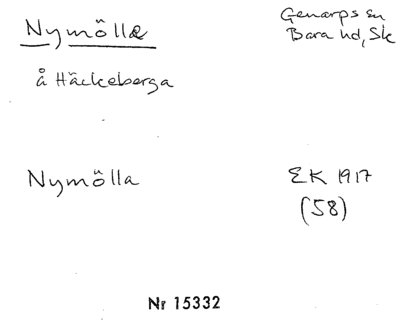 Nymölla
Genarps sn
Bara hd, Sk
å Häckeberga
Nymölla
EK 1917
(58)
Nr 15332